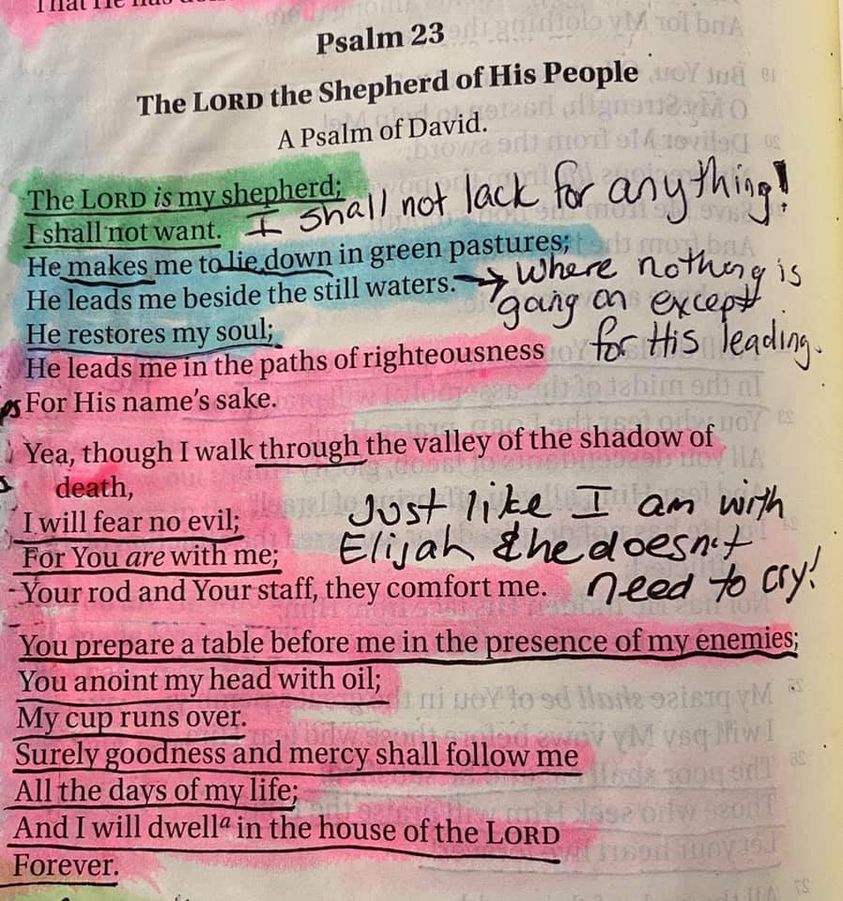 That He has
Psalm 23
The LORD the Shepherd of His People
A Psalm of David.
The LORD is my shepherd;
I shall not want. I shall not lack for anything!
He makes me to lie down in green pastures;
He leads me beside the still waters. → Where nothing is
going on except
He restores my soul; for His leading.
He leads me in the paths of righteousness
For His name's sake.
Yea, though I walk through the valley of the shadow of
death,
I will fear no evil; Just like I am with
For You are with me; Elijah & he doesn't
Your rod and Your staff, they comfort me. need to cry!
You prepare a table before me in the presence of my enemies;
You anoint my head with oil;
My cup runs over.
Surely goodness and mercy shall follow me
All the days of my life;
And I will dwellᵃ in the house of the LORD
Forever.